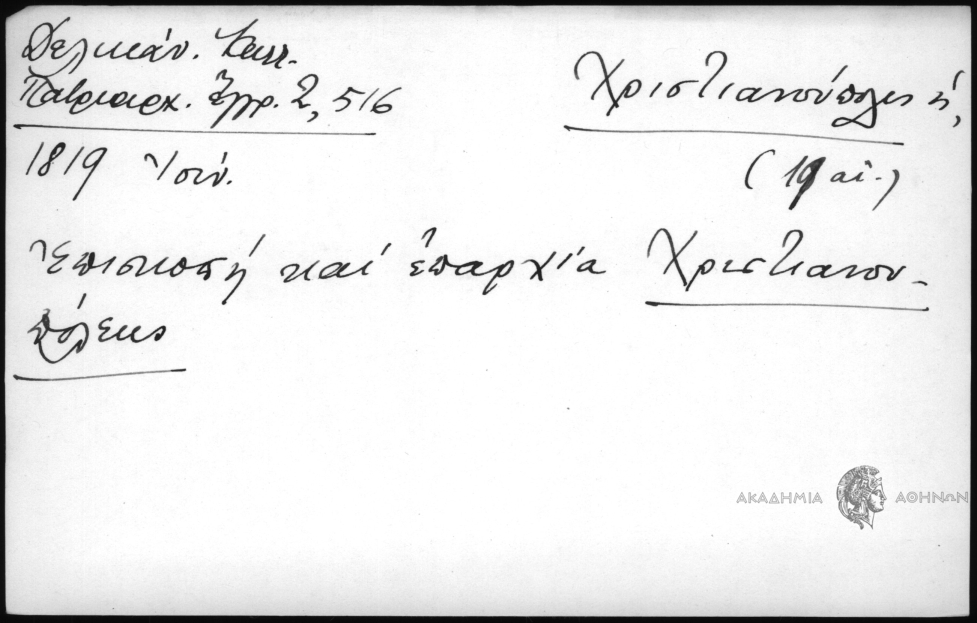 Δελικάν. Καλλ.
Πατριαρχ. Ἔγγρ. 2, 516
Χριστιανούπολις ἡ,
1819 Ἰούν.
(19 αἰ.)
Ἐπισκοπή καί ἐπαρχία Χριστιανου-
πόλεως
ΑΚΑΔΗΜΙΑ ΑΘΗΝΩΝ